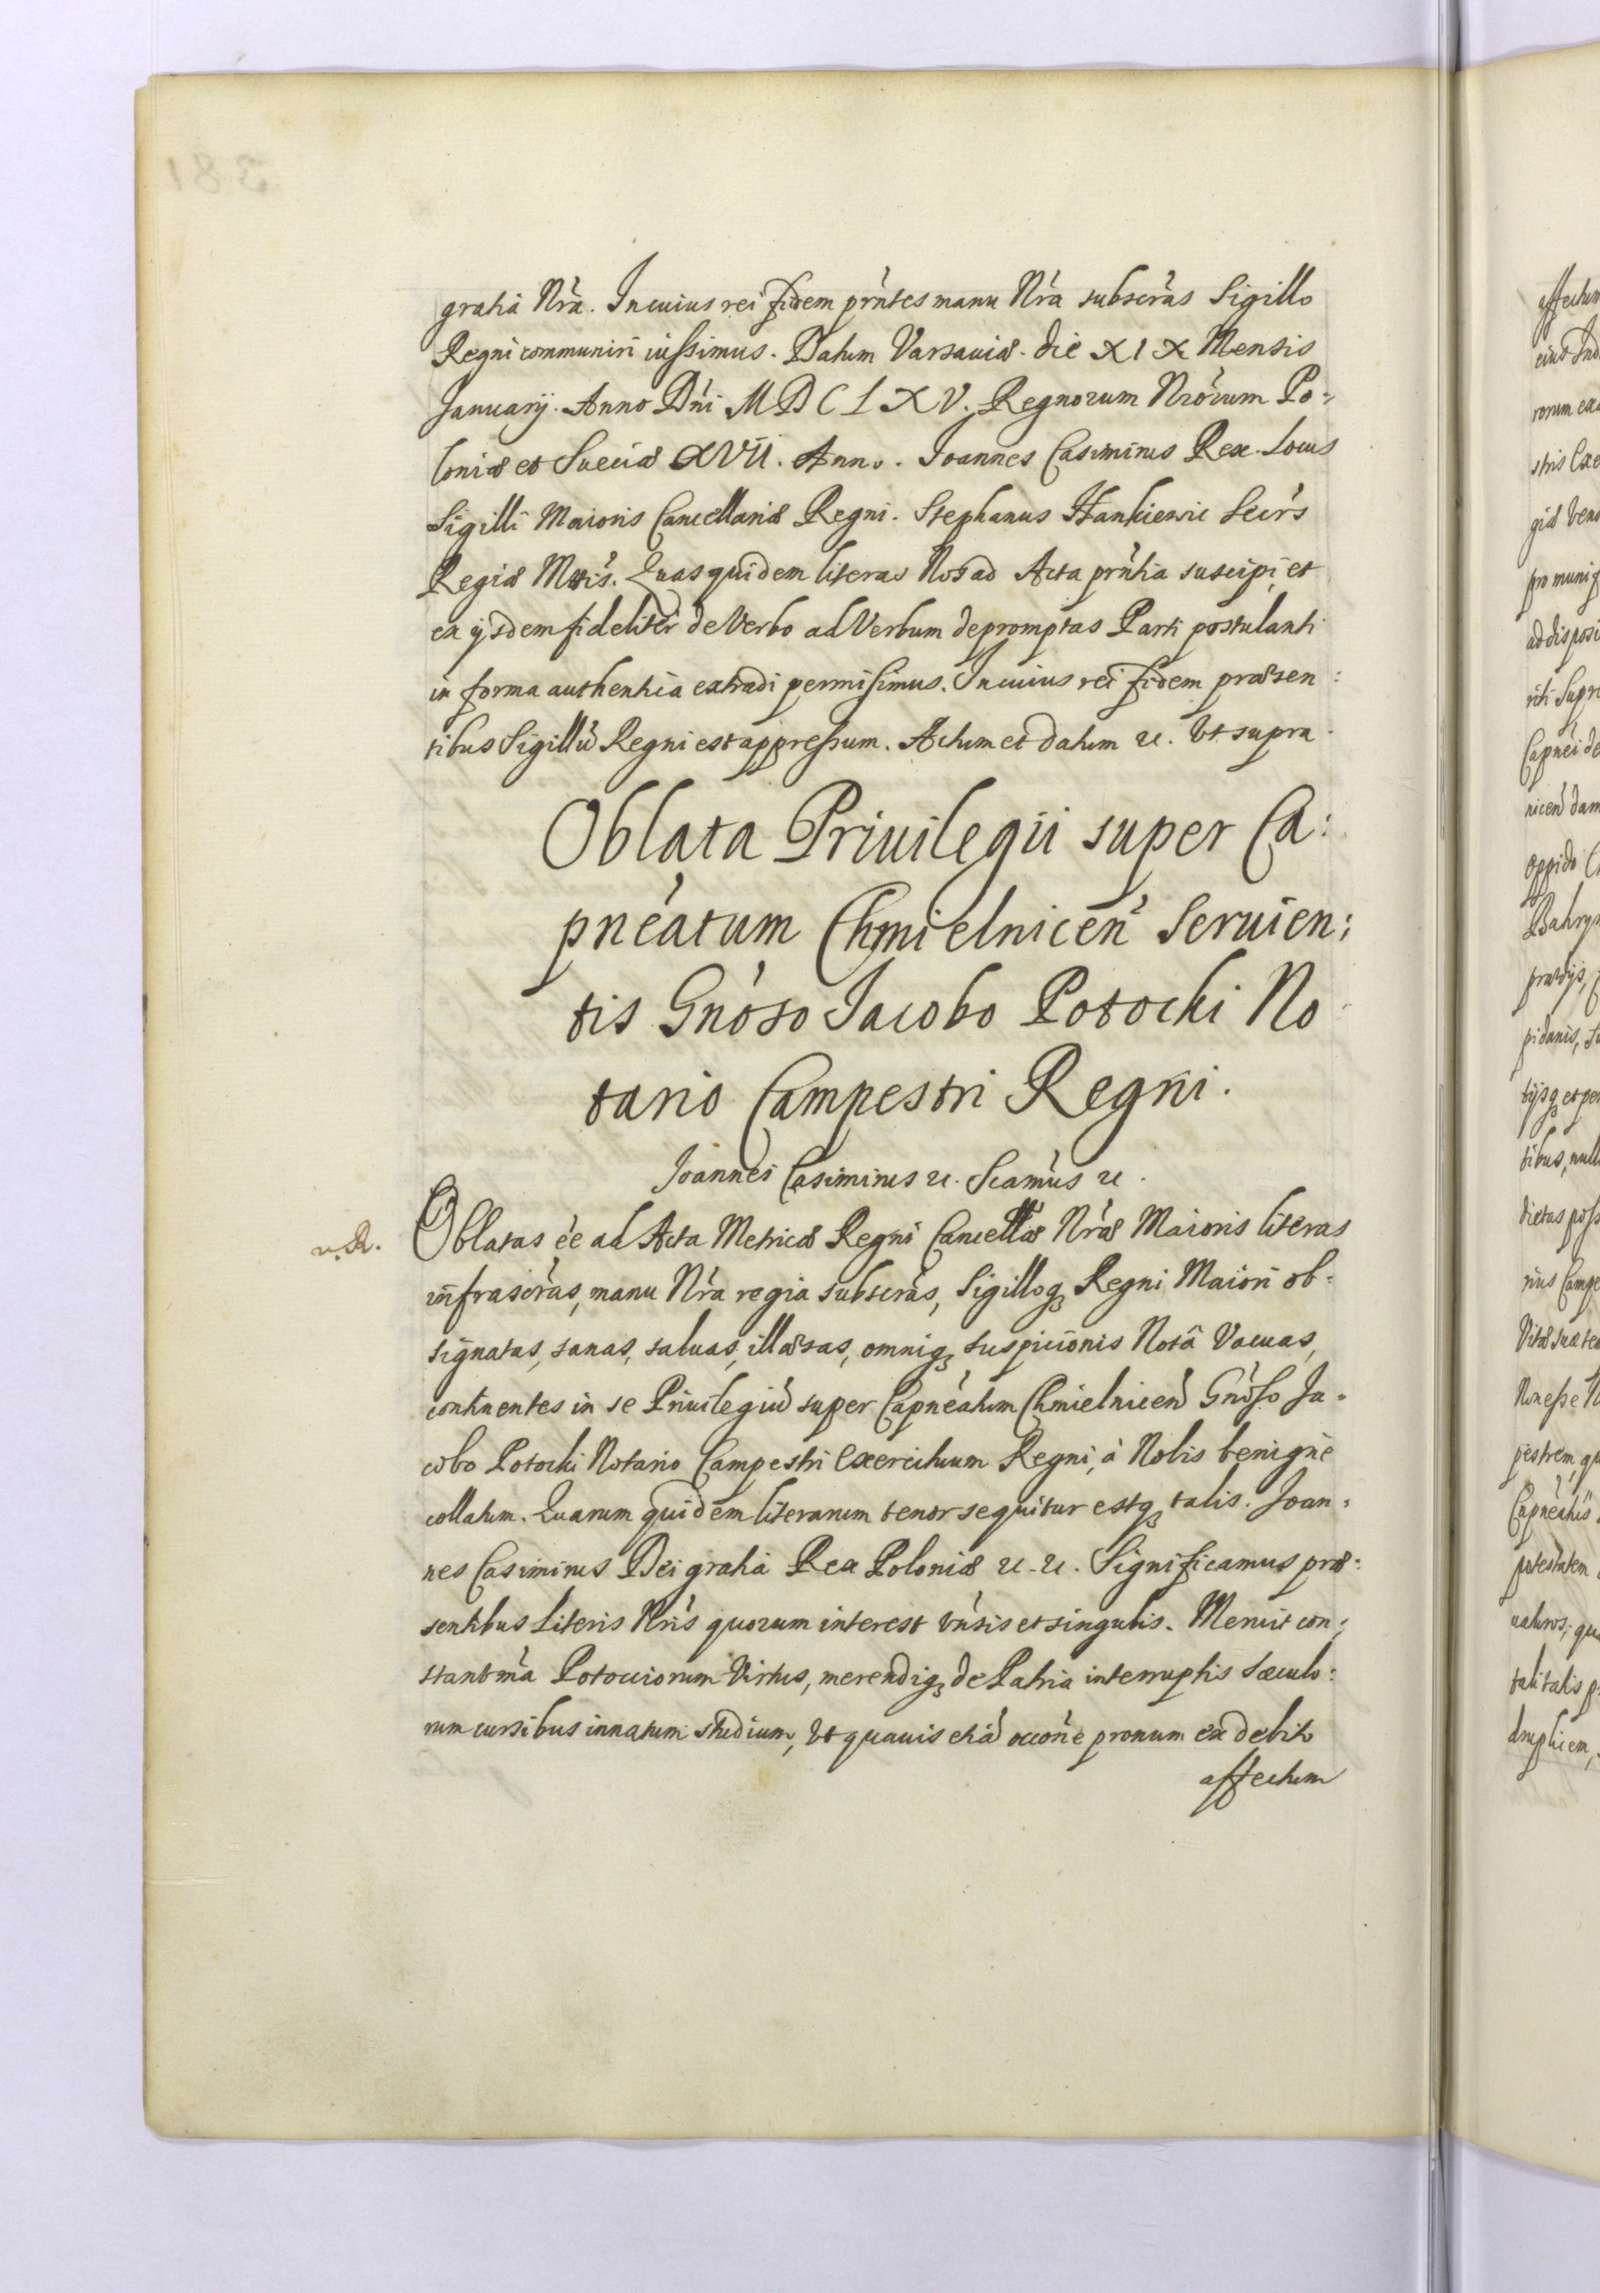 gratia Nrã. In cuius rei fidem prñtes manu Nrã subscrãs Sigillo
Regni communiri iussimus. Datum Varsaviæ. die XIX Mensis
January. Anno Dñi MDCLXV. Regnorum Nrõrum Po=
loniæ et Sueciæ XVII. Anno. Joannes Casimirus Rex. Locus
Sigilli Maioris Cancellariæ Regni. Stephanus Hankiewic Secrs
Regiæ Mttis. Quas quidem literas Nos ad Acta prñtia suscipi, et
ex ijsdem fideliter de Verbo ad Verbum depromptas Parti postulanti
in forma authentica extradi permisimus. In cuius rei fidem præsen:
tibus Sigillũ Regni est appressum. Actum et datum etc. Vt supra.
Oblata Priuilegii super Ca:
pneatum Chmielnicen Seruien:
tis Gnoso Jacobo Potocki No
tario Campestri Regni.
Joannes Casimirus etc. Scamus etc.
v. R.
Oblatas ẽe ad Acta Metricæ Regni Cancellæ Nræ Maioris literas
infrascrãs, manu Nrã regia subscrãs, Sigilloq3 Regni Maiori ob=
signatas, sanas, saluas, illæsas, omniq3 suspicionis Notâ Vacuas,
continentes in se Priuilegiũ super Capneatum Chmielnicen Gnoso Ja=
cobo Potocki Notario Campestri Exercituum Regni, à Nobis benignè
collatum. Quarum quidem literarum tenor sequitur estq3 talis. Joan=
nes Casimirus Dei gratia Rex Poloniæ etc. etc. Significamus præ:
sentibus Literis Nris quorum interest vnsis et singulis. Meruit con:
stantmã Potocciorum Virtus, merendiq3 de Patria interruptis sæculo:
rum cursibus innatum studium, Vt quauis etiã occone pronum ex debito
affectum